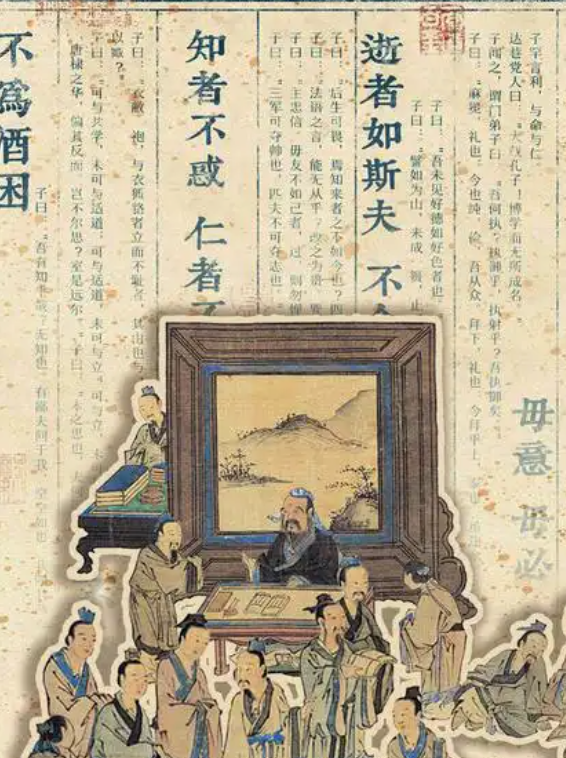 子罕言利，与命与仁。
达巷党人曰："大哉孔子！博学而无所成名。"
子闻之，谓门弟子曰："吾何执？执御乎，执射乎？吾执御矣。"
子曰："麻冕，礼也；今也纯，俭，吾从众。拜下，礼也；今拜乎上，
毋意 毋必
子曰："吾未见好德如好色者也。"
子曰："譬如为山，未成 篑，止
逝者如斯夫 不
子曰："后生可畏，焉知来者之不如今也？四
子曰："法语之言，能无从乎？改之为贵。
子曰："主忠信，毋友不如己者，过，则勿惮
子曰："三军可夺帅也，匹夫不可夺志也。"
知者不惑 仁者不
子曰："衣敝 袍，与衣狐貉者立而不耻者，其由也与
以臧？"
子曰："可与共学，未可与适道；可与适道，未可与立；可与立，未
"唐棣之华，偏其反而。岂不尔思？室是远尔。"子曰："未之思也，
子曰："吾有知乎哉？无知也。有鄙夫问于我，空空如也
不為酒困